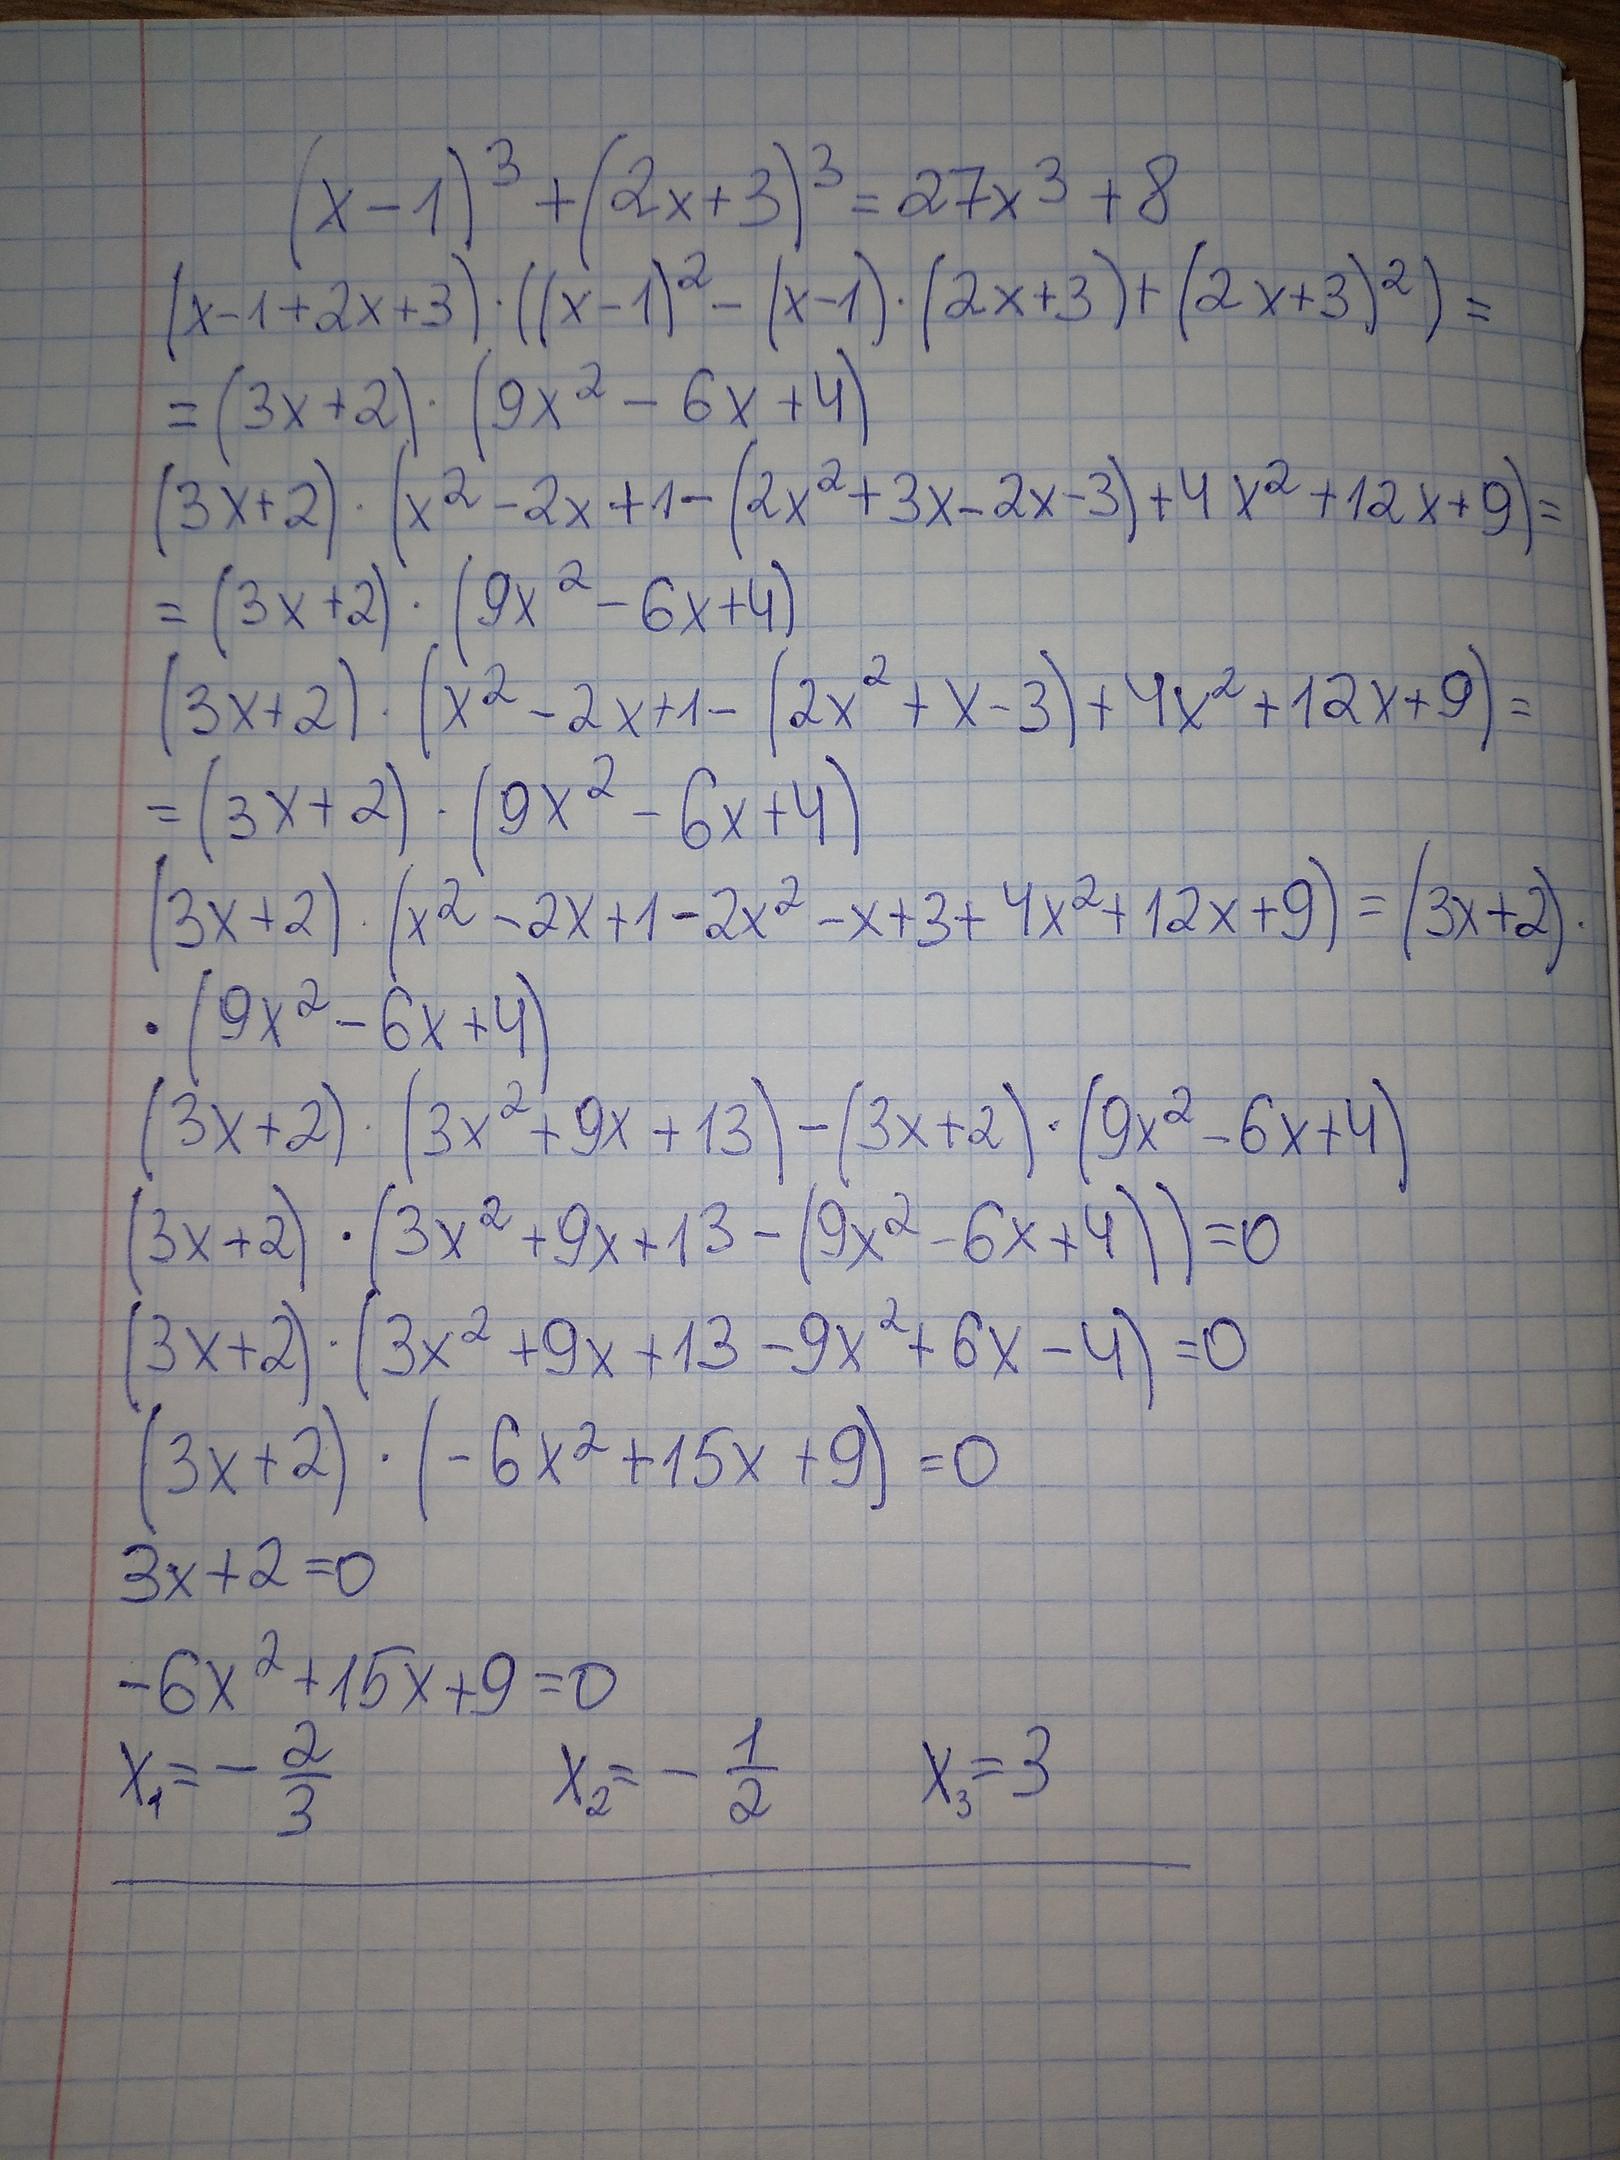 (x-1)³+(2x+3)³=27x³+8
(x-1+2x+3)·((x-1)²-(x-1)·(2x+3)+(2x+3)²)=
=(3x+2)·(9x²-6x+4)
(3x+2)·(x²-2x+1-(2x²+3x-2x-3)+4x²+12x+9)=
=(3x+2)·(9x²-6x+4)
(3x+2)·(x²-2x+1-(2x²+x-3)+4x²+12x+9)=
=(3x+2)·(9x²-6x+4)
(3x+2)·(x²-2x+1-2x²-x+3+4x²+12x+9)=(3x+2)·
·(9x²-6x+4)
(3x+2)·(3x²+9x+13)-(3x+2)·(9x²-6x+4)
(3x+2)·(3x²+9x+13-(9x²-6x+4))=0
(3x+2)·(3x²+9x+13-9x²+6x-4)=0
(3x+2)·(-6x²+15x+9)=0
3x+2=0
-6x²+15x+9=0
x₁=-2/3 x₂=-1/2 x₃=3